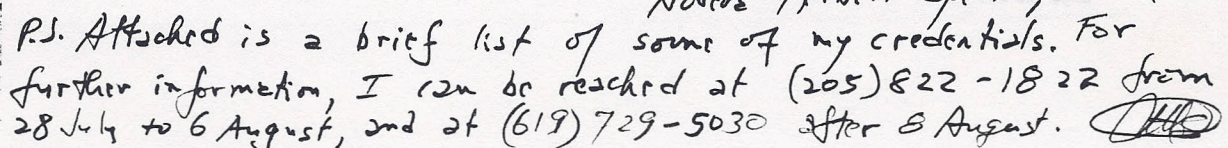 P.S. Attached is a brief list of some of my credentials. For
further information, I can be reached at (205) 822-1822 from
28 July to 6 August, and at (619) 729-5030 after 8 August.